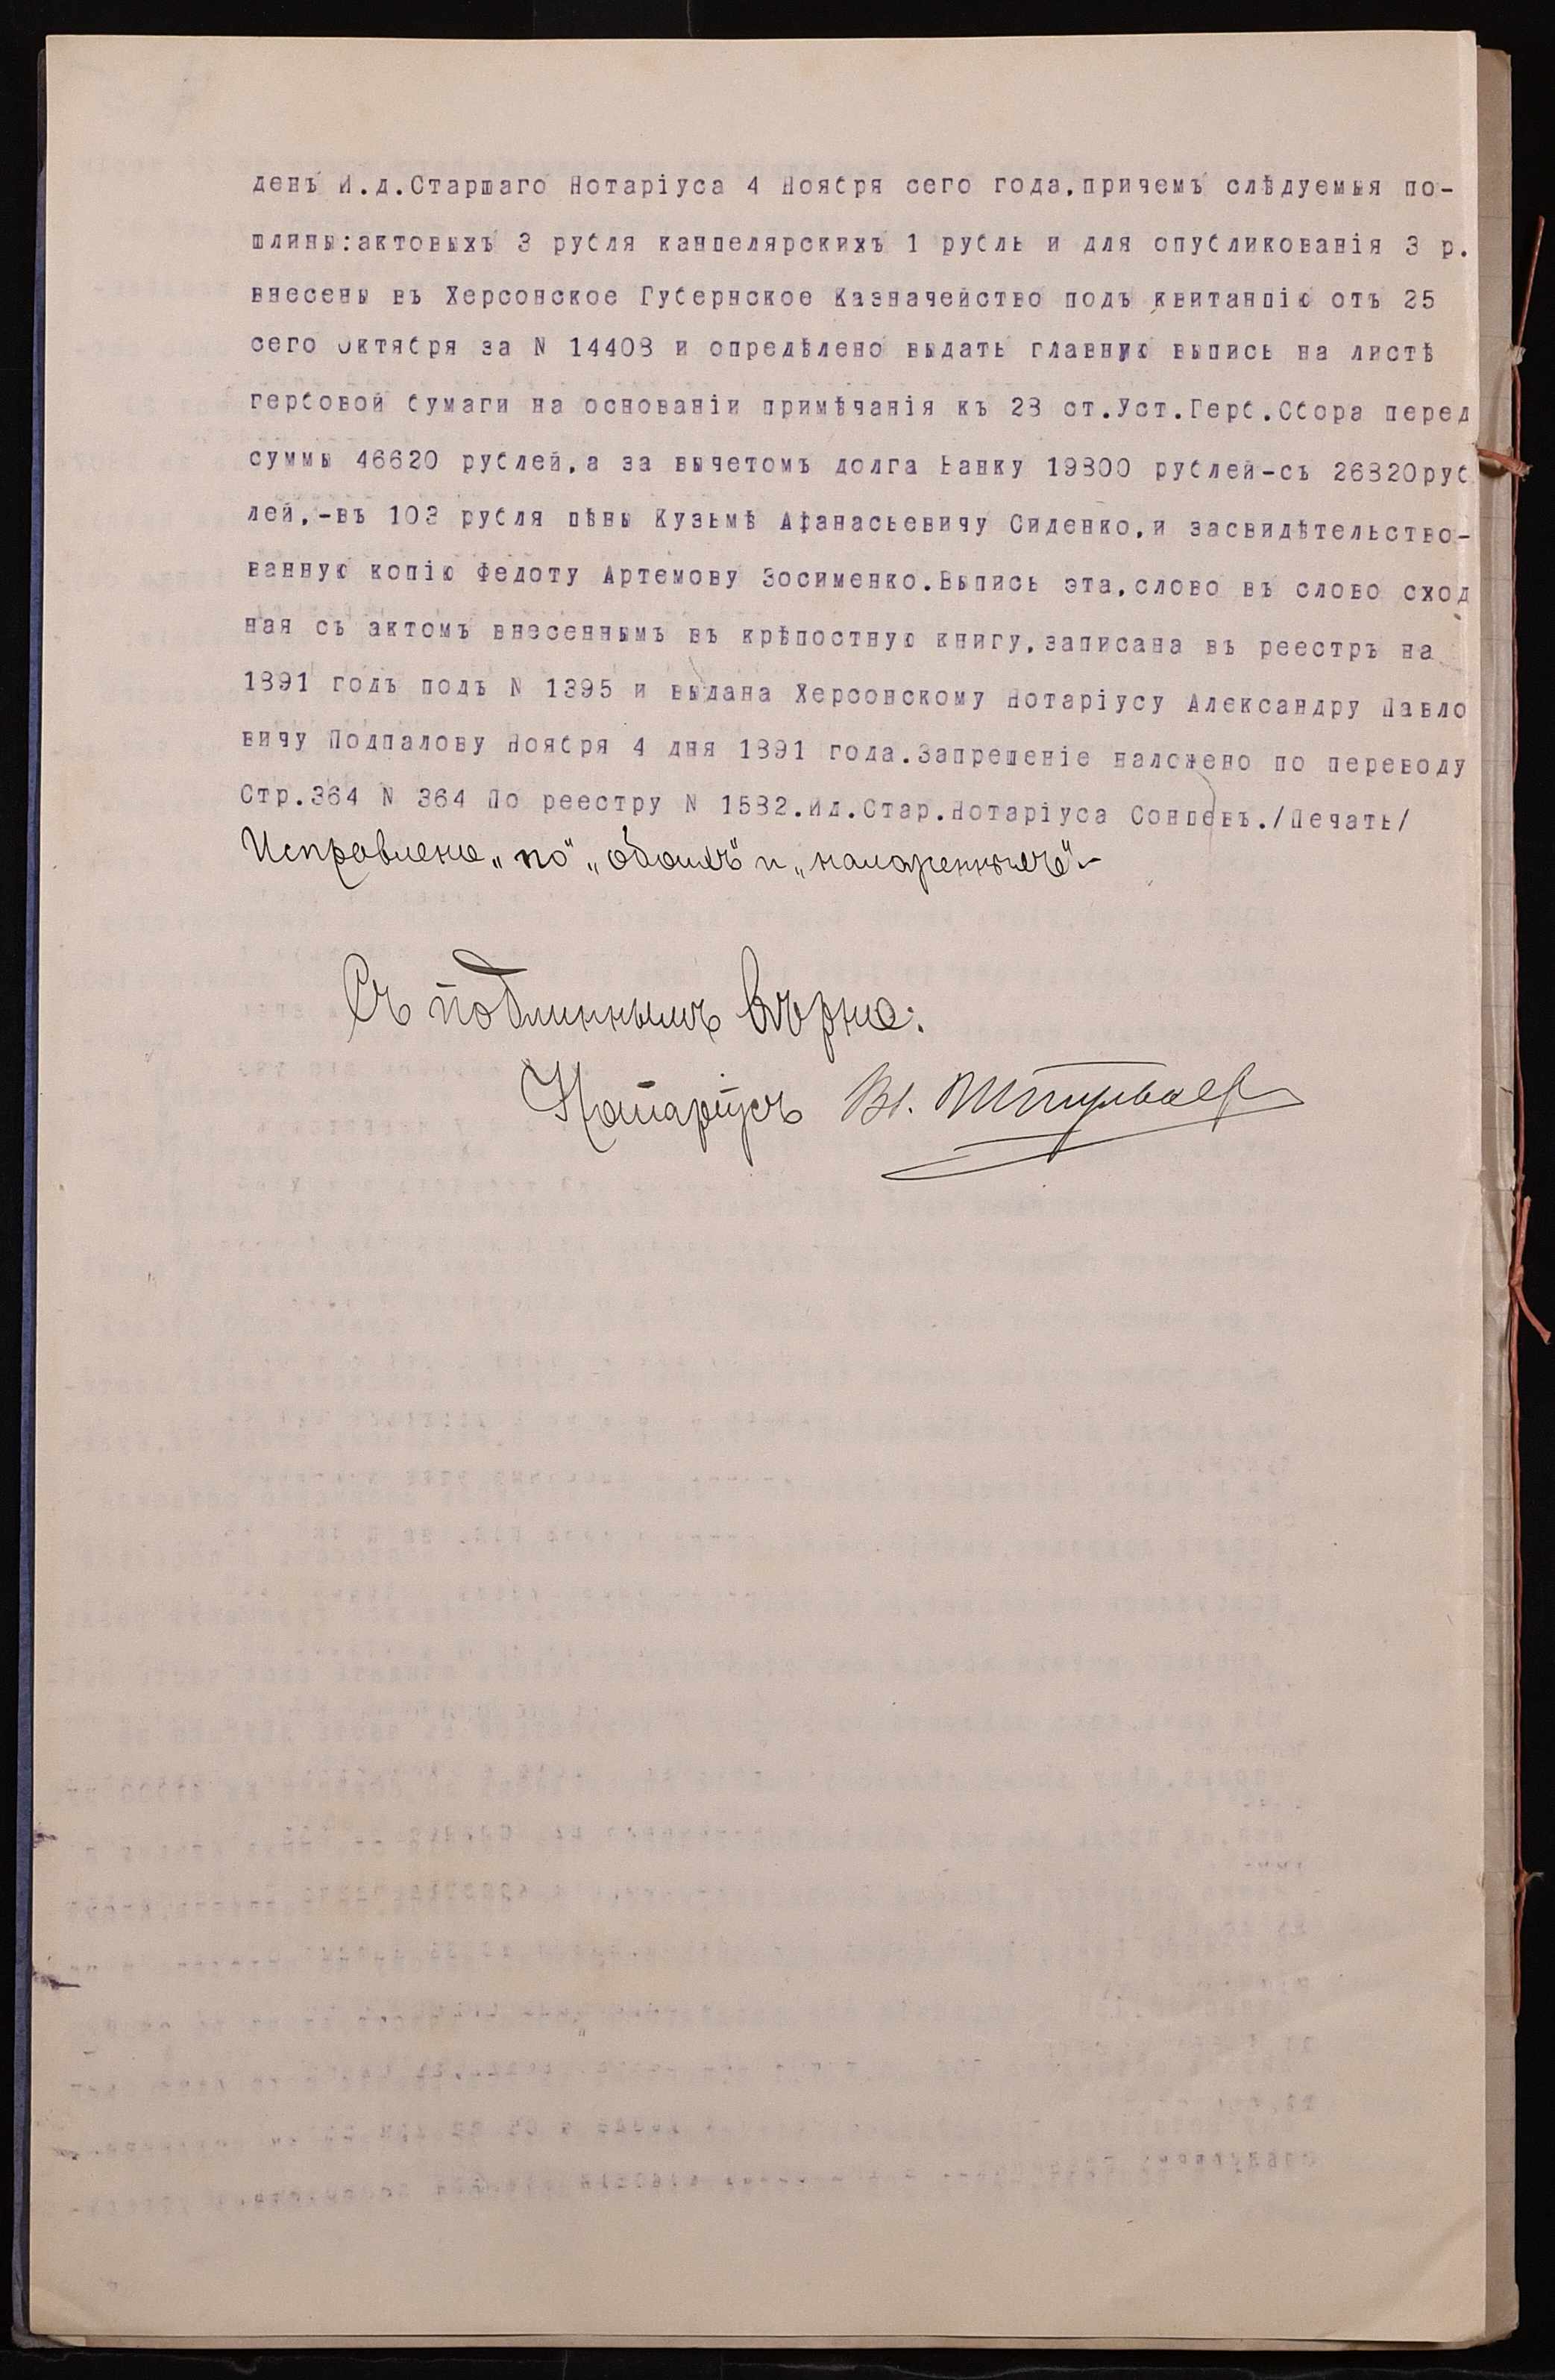 денъ И.д.Старшаго Нотаріуса 4 Ноября сего года,причемъ слѣдуемыя по-
шлины:актовыхъ 3 рубля канцелярскихъ 1 рубль и для опубликованія 3 р.
внесены въ Херсонское Губернское Казначейство подъ квитанцію отъ 25
сего Октября за N 14408 и опредѣлено выдать главную выпись на листѣ
гербовой бумаги на основаніи примѣчанія къ 28 ст.Уст.Герб.Сбора перед
суммы 46620 рублей,а за вычетомъ долга Банку 19800 рублей-съ 26820руб
лей,-въ 103 рубля цѣны Кузьмѣ Афанасьевичу Сиденко,и засвидѣтельство-
ванную копію Федоту Артемову Зосименко.Выпись эта,слово въ слово сход
ная съ актомъ внесеннымъ въ крѣпостную книгу,записана въ реестръ на
1891 годъ подъ N 1395 и выдана Херсонскому Нотаріусу Александру Павло
вичу Подпалову Ноября 4 дня 1891 года.Запрещеніе наложено по переводу
Стр.364 N 364 По реестру N 1582.Ид.Стар.Нотаріуса Сонцевъ./Печать/
Исправлено „по“ „обоихъ“ и
Съ подлиннымъ вѣрно:
Нотаріусъ Вл.